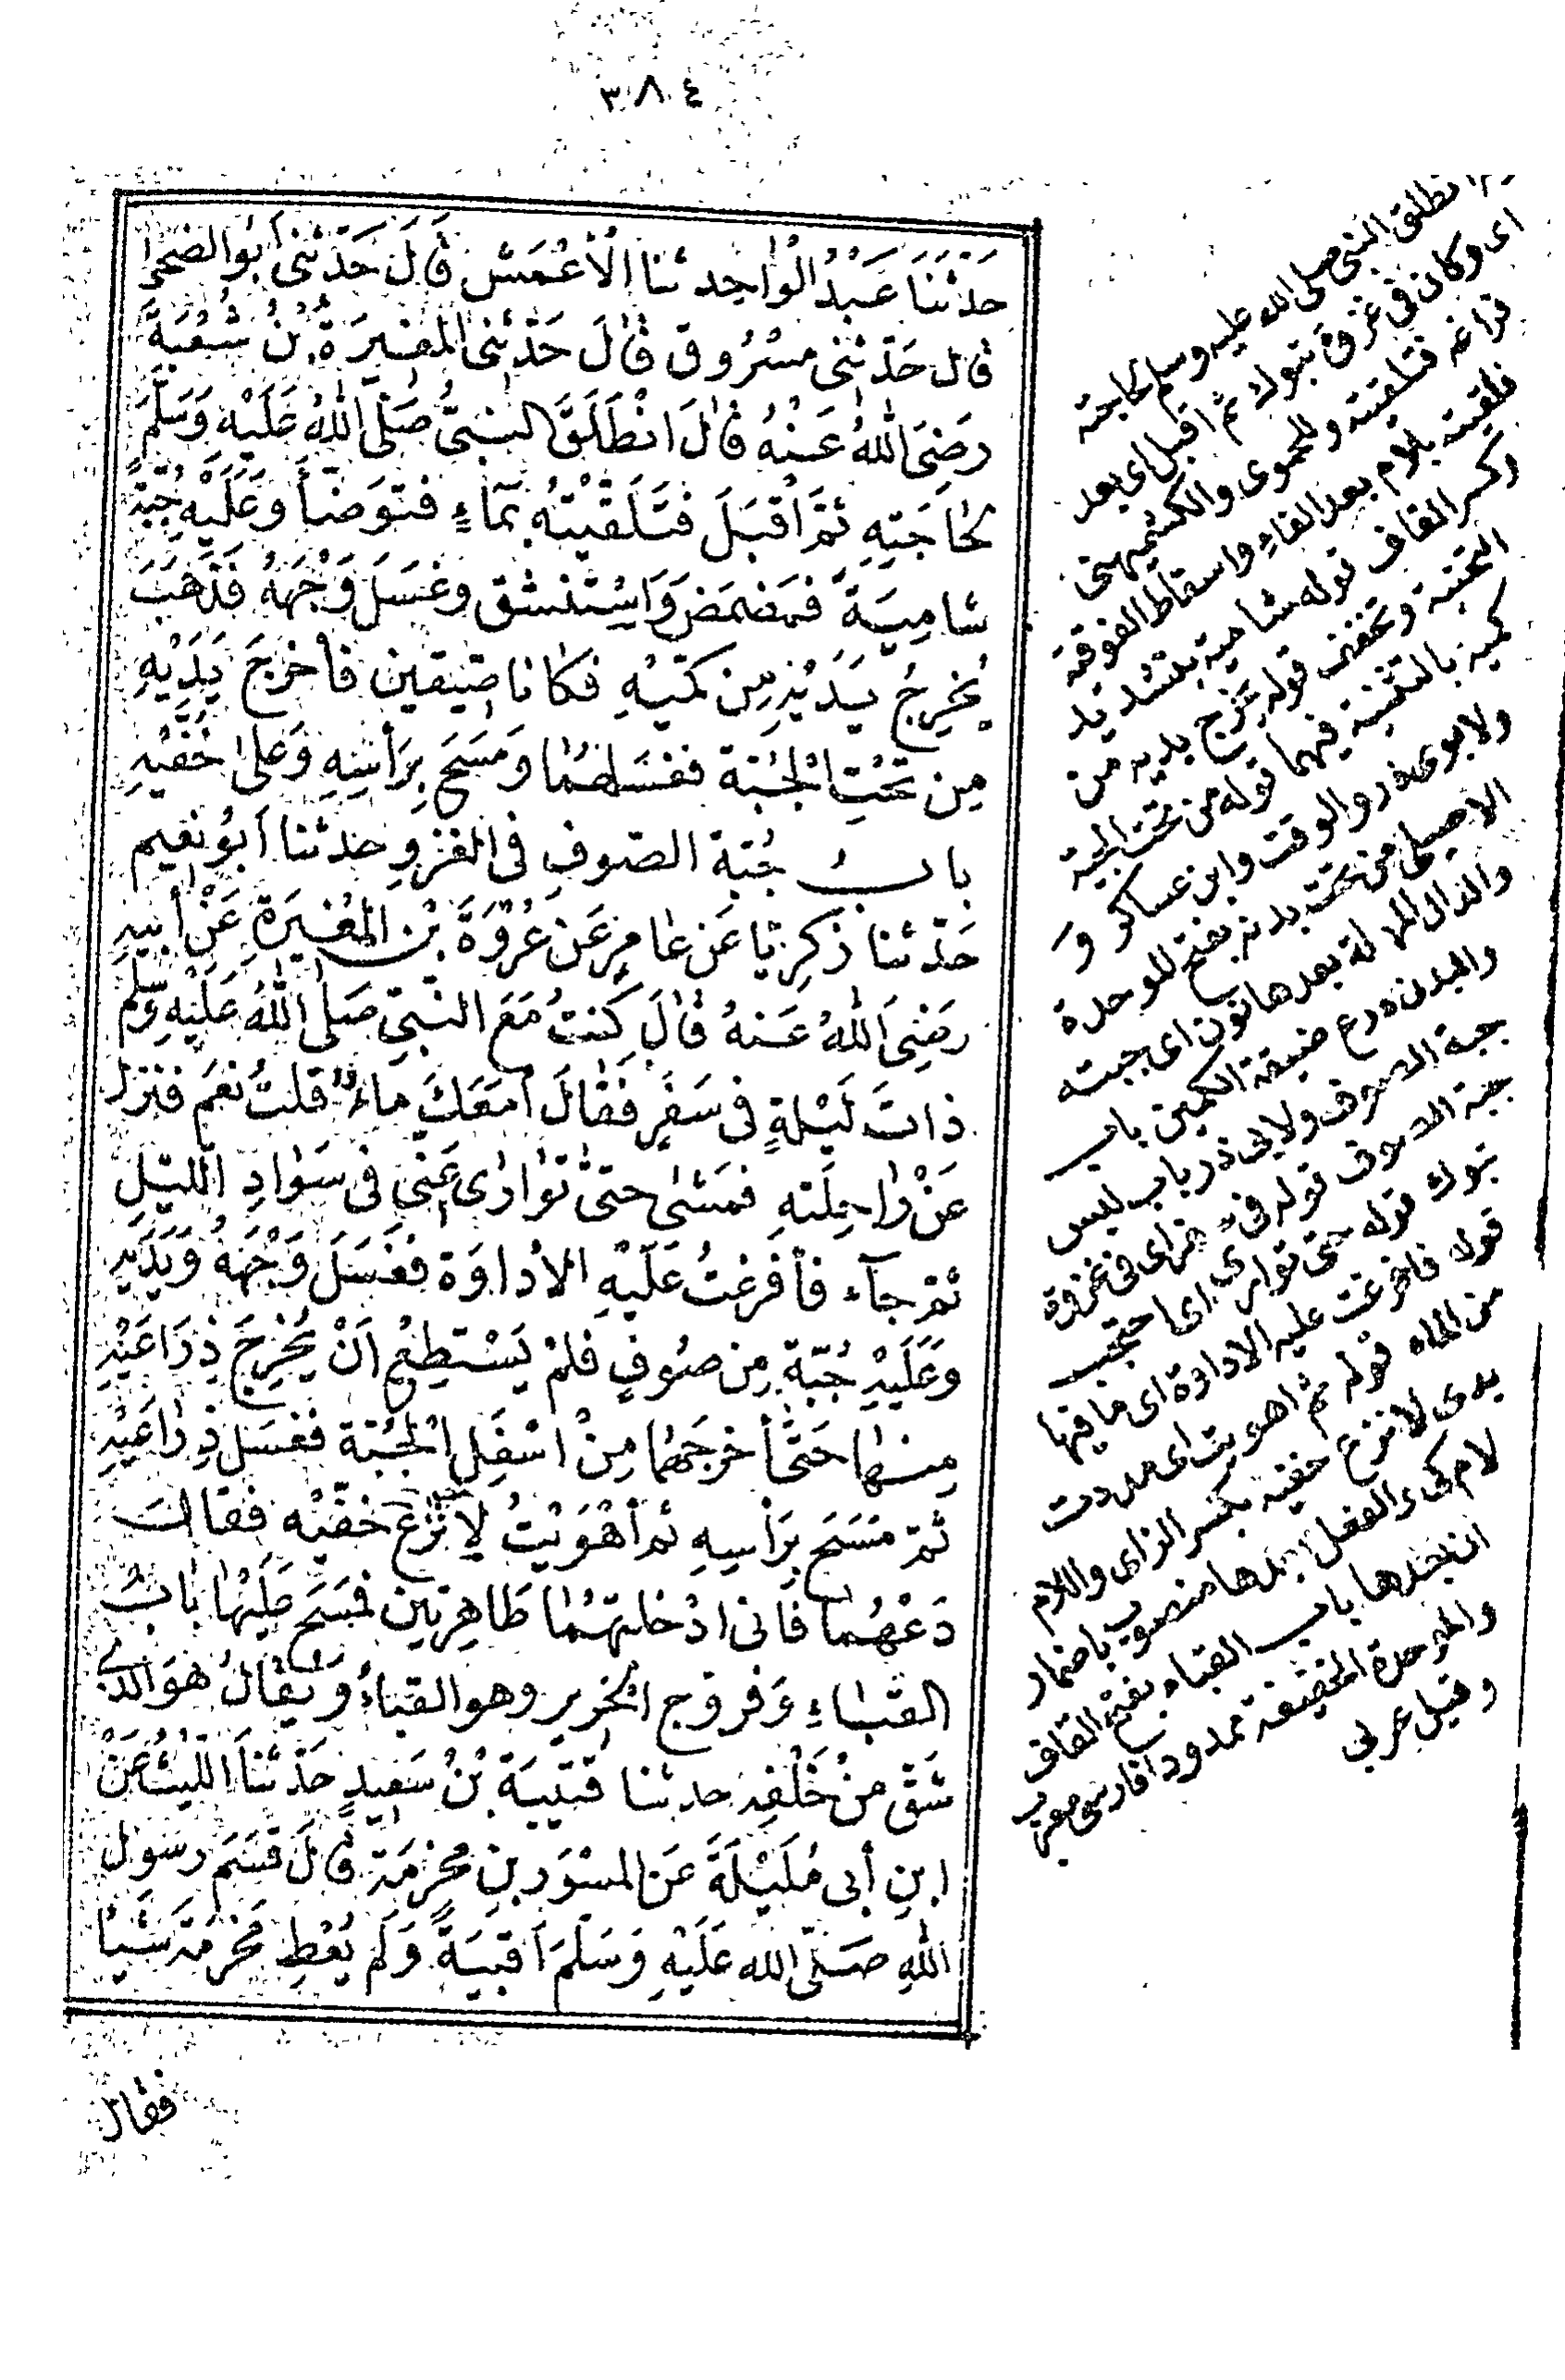 ٣٨٤
حَدَّثَنَا عَبْدُ الْوَاحِدِ ثنا الْأَعْمَشُ قَالَ حَدَّثَنِي أَبُو الضُّحَى
قال حَدَّثَنِي مَسْرُوق قَالَ حَدَّثَنِي الْمُغِيرَةُ بْنُ شُعْبَةَ
رَضِيَ اللهُ عَنْهُ قَالَ انْطَلَقَ النَّبِيُّ صَلَّى اللهُ عَلَيْهِ وَسَلَّمَ
لِحَاجَتِهِ ثُمَّ أَقْبَلَ فَتَلَقَّيْتُهُ بِمَاءٍ فَتَوَضَّأَ وَعَلَيْهِ جُبَّةٌ
شَامِيَةٌ فَمَضْمَضَ وَاسْتَنْشَقَ وغَسَلَ وَجْهَهُ فَذَهَبَ
يُخْرِجُ يَدَيْهِ مِن كُمَّيْهِ فَكَانَا ضَيِّقَيْنِ فَأَخْرَجَ يَدَيْهِ
مِن تَحْتِ الْجُبَّةِ فَغَسَلَهُمَا وَمَسَحَ بِرَأْسِهِ وَعَلَى خُفَّيْهِ
بابُ جُبَّةِ الصُّوفِ في الغزوِ حدثنا أَبُو نُعَيم
حَدَّثنا زَكَرِيَّا عَن عَامِرٍ عَن عُرْوَةَ بْنِ الْمُغِيرَةِ عَنْ أَبِيهِ
رَضِيَ اللهُ عَنهُ قَالَ كُنتُ مَعَ النَّبِيِّ صَلَّى اللهُ عَلَيْهِ وَسَلَّم
ذَاتَ لَيْلَةٍ في سَفَرٍ فَقَالَ أَمَعَكَ مَاءٌ قلتُ نَعَم فنزل
عَنْ رَاحِلَتِهِ فَمَشَى حتى تَوَارَى عَنِّي في سَوَادِ اللَّيْلِ
ثم جآء فأَفْرَغْتُ عَلَيْهِ الإدَاوَة فَغَسَلَ وَجْهَهُ وَيَدَيْهِ
وعَلَيْهِ جُبَّةٌ مِن صُوفٍ فَلَمْ يَسْتَطِعْ أَنْ يُخْرِجَ ذِرَاعَيْهِ
مِنهَا حَتَّى أَخْرَجَهُمَا مِنْ أَسْفَلِ الْجُبَّة فَغَسَلَ ذِرَاعَيْهِ
ثُمَّ مَسَحَ بِرَأْسِهِ ثم أَهْوَيْتُ لِأَنْزِعَ خُفَّيْهِ فَقَالَ
دَعْهُمَا فَإنى ادْخَلتهُمَا طَاهِرَتَيْنِ فَمَسَحَ عَلَيْهَا بَابُ
القَبَاءِ وَفَرُّوج الحَرِير وهو القَبَاءُ وَيُقَالُ هوَ الَّذي
شَقّ مِنْ خَلْفِهِ حدثنا قُتَيْبَةُ بْنُ سَعِيدٍ حَدَّثَنَا اللَّيْثُ عَنْ
ابنِ أَبِي مُلَيْكَةَ عَنِ المِسْوَرِ بنِ مَخْرَمَة قَالَ قَسَمَ رسَول
اللهِ صَلَّى الله عَلَيْهِ وَسَلَّمَ أَقْبِيَةً وَلَم يُعْطِ مَخْرَمَةَ شَيْئًا
فقال
انطلق النبي صلى الله عليه وسلم لحاجته
اى وكان في غزوة تبوك ثم اقبل اى بعد
فراغه فتلقيته وللحموى والكشميهنى
فلقيته بلام بعد الفاء واسقاط الفوقية
وكسر القاف قوله شامية بتشديد
التحتية وتخفف قوله يخرج يديه من
كميه بالتثنية فيهما قوله من تحت الجبة
ولابوى ذر والوقت وابن عساكر و
الاصيلى من تحت بدنه بفتح الموحدة
والدال المهملة بعدها نون اى جبته
والبدن درع ضيقة الكمين باب
جبة الصوف ولابى ذر باب لبس
جبة الصوف قوله في سفر اى فى غزوة
تبوك قوله حتى توارى اى احتجب
قوله فافرغت عليه الاداوة اى ما فيها
من الماء قوله ثم اهويت اى مددت
يدى لانزع خفيه بكسر الزاى واللام
لام كى والفعل بعدها منصوب باضمار
ان بعدها باب القباء بفتح القاف
والموحدة المخففة ممدودا فارسى معرب
وقيل عربى